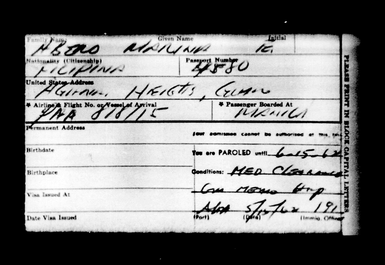 Family Name Given Name Initial
ABERO MARINA E.
Nationality (Citizenship) Passport Number
FILIPINA 4580
United States Address
AGANA HEIGTS, GUAM
* Airline & Flight No. or Vessel of Arrival * Passenger Boarded At
PAA 818/15 MANILA
Permanent Address
Your admittance cannot be authorized at this time
Birthdate
You are PAROLED until 6-15-62
Birthplace
Conditions: MED CLEARANCE
Visa Issued At
Guam Mem Hosp
Date Visa Issued
AGA 5/15/62 191
(Port) (Date) (Immig. Officer)
PLEASE PRINT IN BLOCK CAPITAL LETTERS